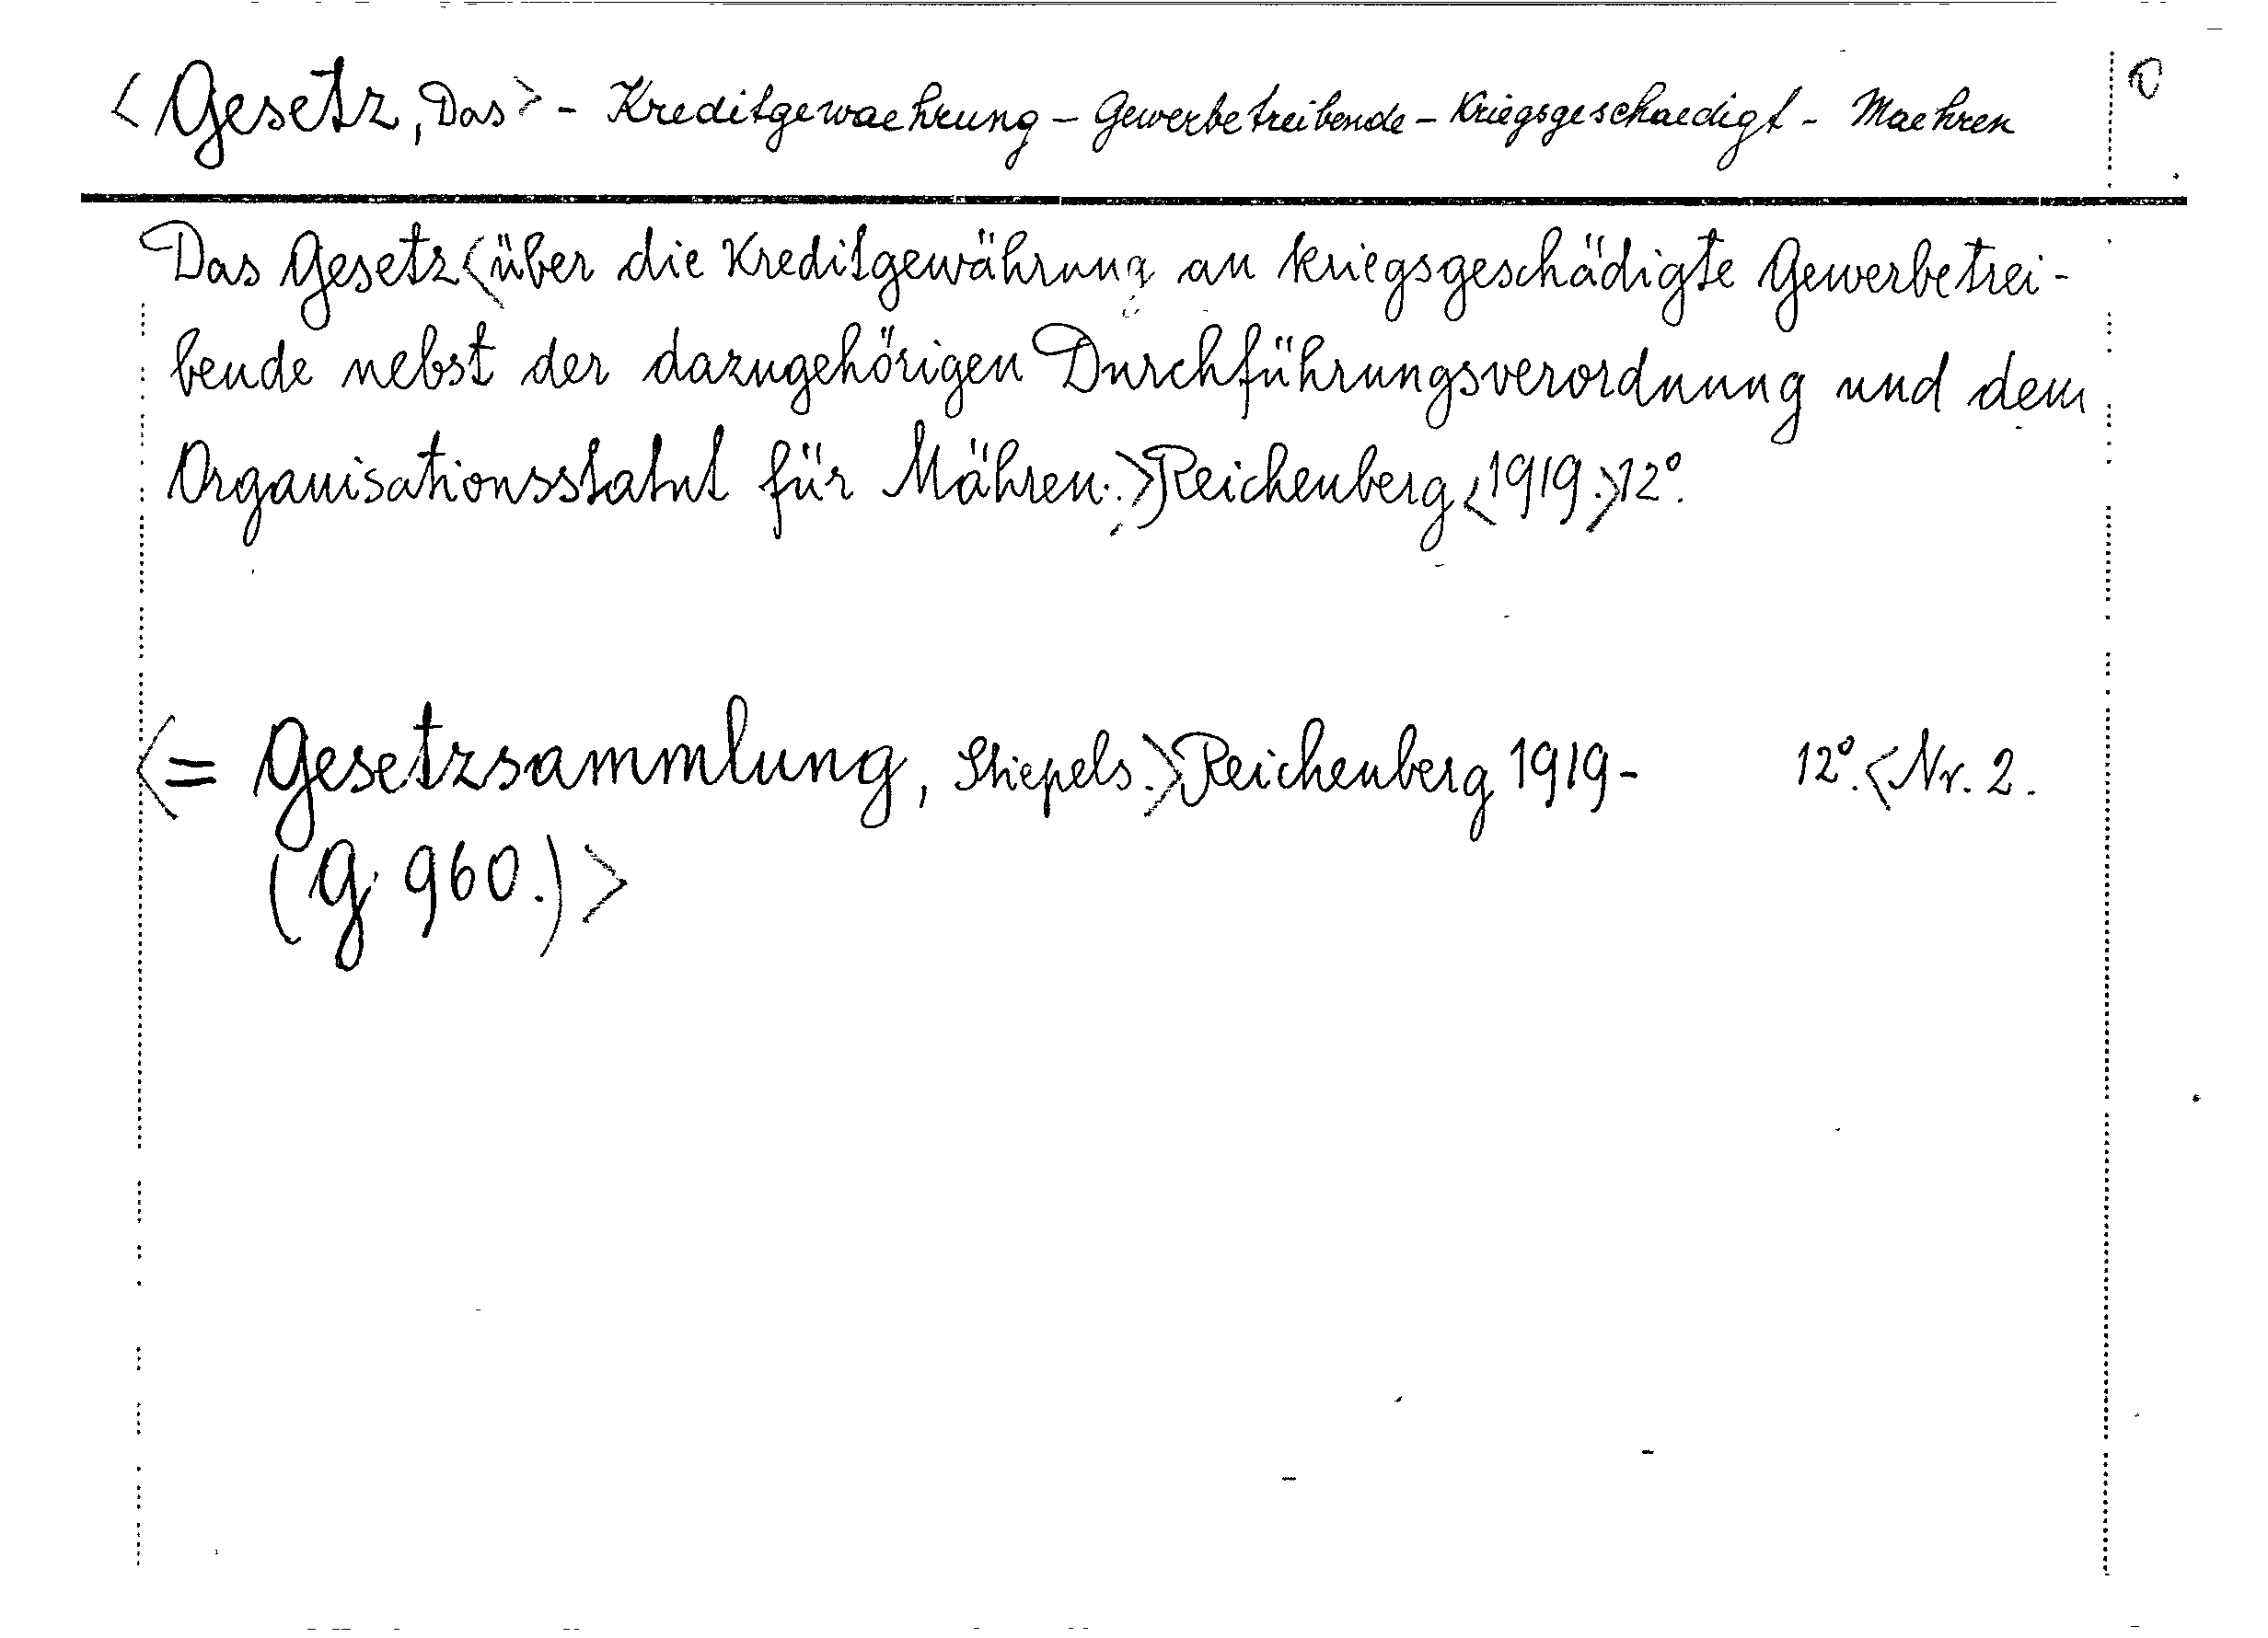 <Gesetz, Das> - Kreditgewaehrung - Gewerbetreibende - Kriegsgeschaedigt - Maehren
Das Gesetz <über die Kreditgewährung an kriegsgeschädigte Gewerbetrei-
bende nebst der dazugehörigen Durchführungsverordnung und dem
Organisationsstatut für Mähren.> Reichenberg <1919.> 12°.
<= Gesetzsammlung, Stiepels.> Reichenberg 1919- 12°. <Nr. 2.
(G 960.)>